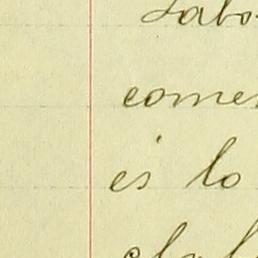 Labo
comen
es lo